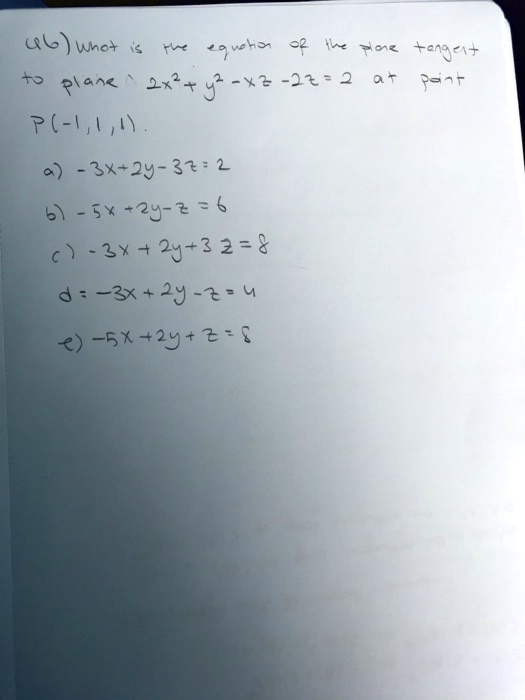 46) what is the equation of the plane tangent
to plane 2x² + y² - xz - 2z = 2 at point
P(-1,1,1).
a) - 3x+2y-3z=2
b) - 5x +2y-z =6
c) - 3x + 2y+3z=8
d = -3x + 2y -z = 4
e) -5x +2y+ z = 8